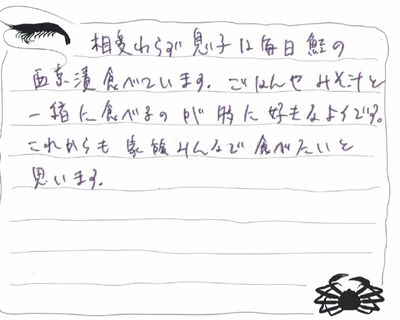 相変わらず息子は毎日鮭の
西京漬食べています。ごはんやみそ汁と
一緒に食べるのが特に好きなようです。
これからも家族みんなで食べたいと
思います。